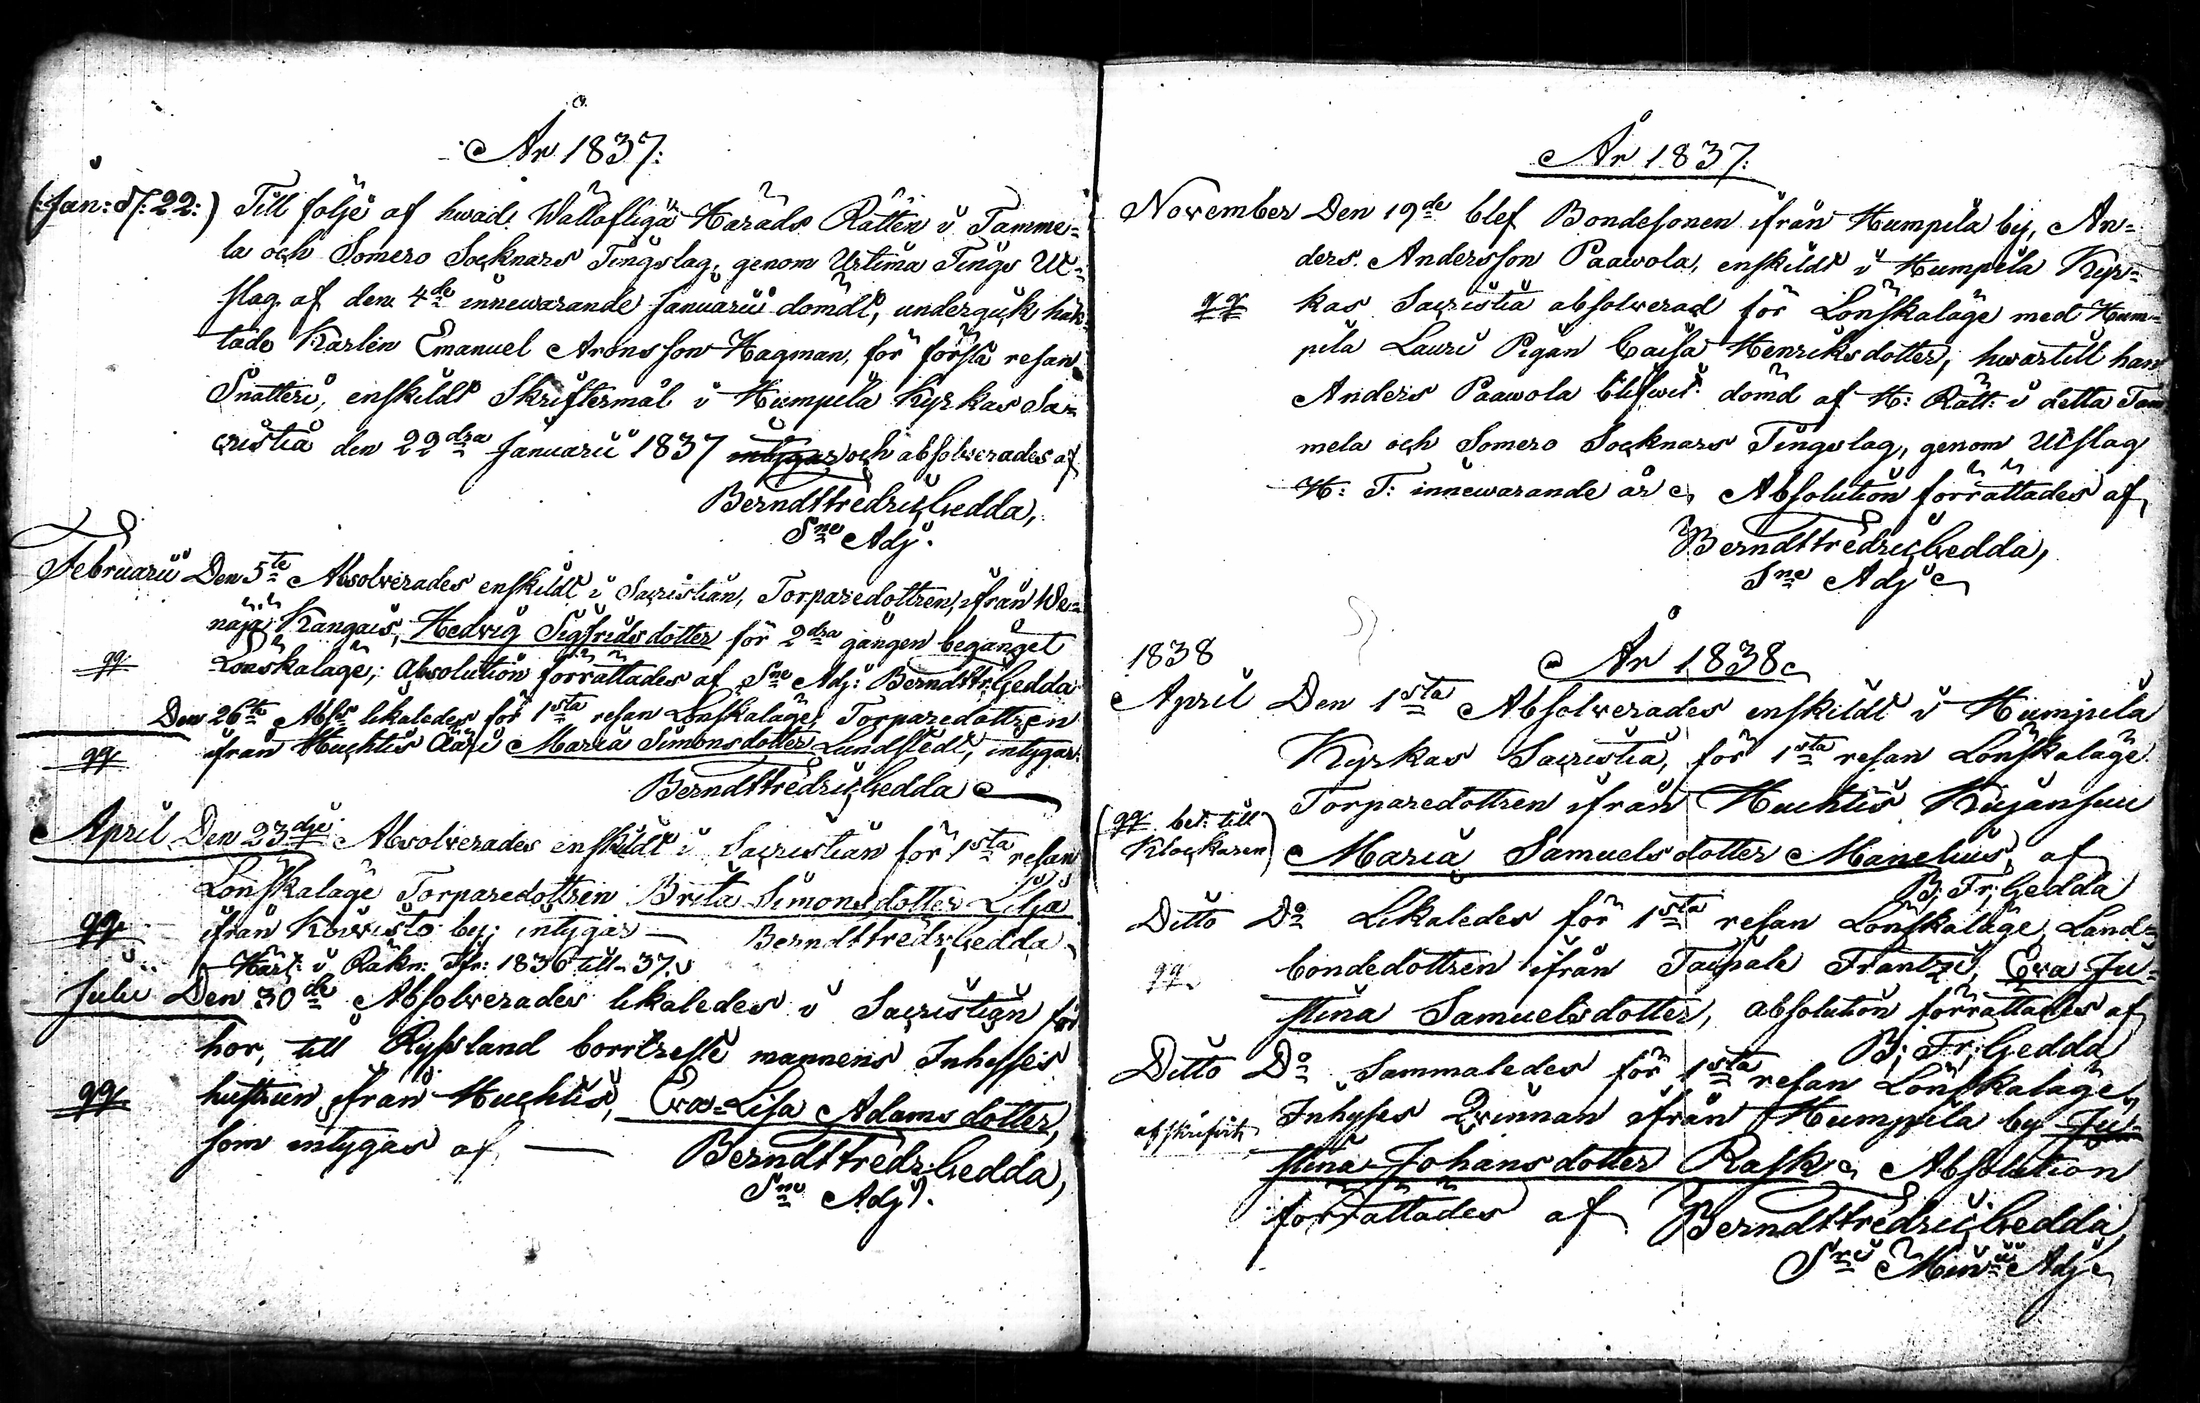 År 1837:
(:Jan: d: 22:) Till följe af hwad Wällofliga Härads Rätten i Tamme=
la och Somero Socknars Tingslag, genom Urtima Tings Ut=
slag af den 4de innewarande Januarii dömdt, undergick häk=
tade Karlen Emanuel Aronsson Hagman, för första resan
Snatteri, enskildt Skriftermål i Humpila Kyrkas Sa=
cristia den 22dra Januarii 1837 intygar och absolverades af
Berndt Fredric Gedda,
Sne Adj.
Februarii Den 5te Absolverades enskildt i Sacristian, Torparedottren, ifrån We=
näjä Kangais, Hedvig Sigfridsdotter för 2dra gången begånget
qq Lönskaläge; absolution förrättades af Sne Adj: Berndt Fr: Gedda
Den 26te Abs: likaledes för 1sta resan Lönskaläge, Torparedottren
qq ifrån Huchtis Ääri Maria Simonsdotter Lundstedt, intygar.
Berndt Fredric Gedda
April Den 23dje Absolverades enskildt i Sacristian för 1sta resan
Lönskaläge Torparedottren Brita Simonsdotter Lilja
qq ifrån Kowisto by; intygar — Berndt Fredr: Gedda
Härt: i Räkn: för: 1836 till 37.
Julii Den 30de Absolverades likaledes i Sacristian för
hor, till Ryssland bortreste mannens Inhyses
qq hustrun ifrån Huchtis, Eva=Lisa Adamsdotter,
som intygas af — Berndt Fredr: Gedda,
Sne Adj.
År 1837.
November Den 19de blef Bondesonen ifrån Humpila by, An=
ders Andersson Paawola, enskildt i Humpila Kyr=
qq kas Sacristia absolverad för Lönskaläge med Hum=
pila Lauri Pigan Caisa Henriksdotter, hwartill han
Anders Paawola blifwit dömd af H: Rätt: i detta Tam
mela och Somero Socknars Tingslag, genom Utslag
H: T: innewarande år Absolution förrättades af
Berndt Fredric Gedda,
Sne Adj
År 1838
1838
April Den 1sta Absolverades enskildt i Humpila
Kyrkas Sacristia, för 1sta resan Lönskaläge
(qq bet: till Torparedottren ifrån Huchtis Kujansuu
Klockaren) Maria Samuelsdotter Manelius, af
B: Fr: Gedda
Ditto Do Likaledes för 1sta resan Lönskaläge, Land=
qq. bondedottren ifrån Taipale Frantzi, Eva Ju=
stina Samuelsdotter, absolution förrättades af
B: Fr: Gedda
Ditto Do Sammaledes för 1sta resan Lönskaläge,
afskrifvit Inhyses Qvinnan ifrån Humppila by Ju=
stina Johansdotter Rask, Absolution
förrättades af Berndt Fredric Gedda,
Adj